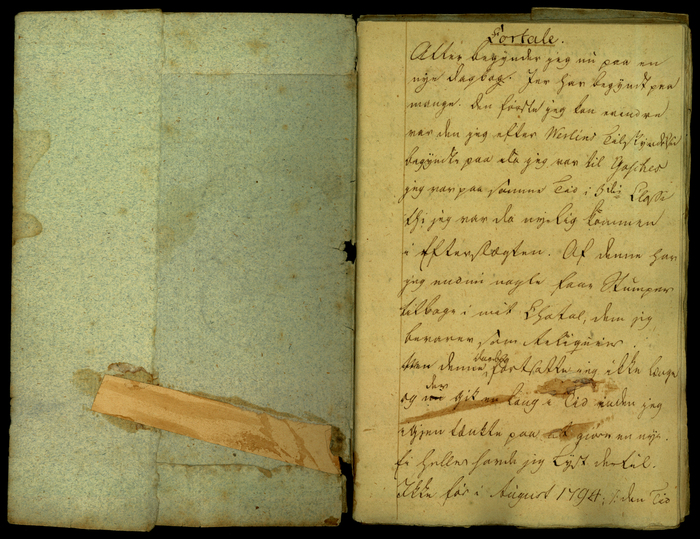 Fortale.
Atter begynder jeg nu paa en
nye Dagbog. Jeg har begyndt paa
mange. den første jeg kan erindre
var den jeg efter
begyndte paa da jeg var til
jeg var paa samme Tid i Classe
thi jeg var da nyelig kommen
i Efterslægten. Af denne har
jeg endnu nogle faae Stumper
tilbage i mit Chatol, dem jeg
bevarer som Reliqvier.
Men denne Dagbog fortsatte jeg ikke længe
og der gik en lang Tid inden jeg
igjen tænkte paa at giøre en nye.
Ei heller havde jeg Lyst dertil.
Ikke før i August 1794, den Tid